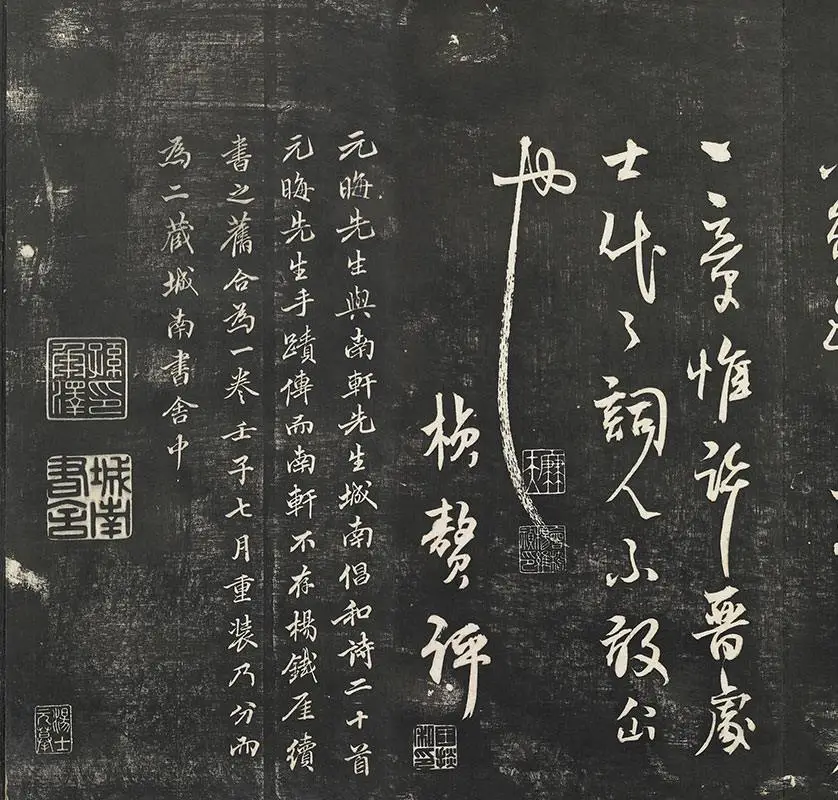 一章惟許晉處
士代々詞人不敢出
也
楨贅評
元晦先生與南軒先生城南倡和詩二十首
元晦先生手蹟傳而南軒不存楊鐵厓續
書之舊合為一卷壬子七月重装乃分而
為二藏城南書舍中
孫爾澤印
城南書舍